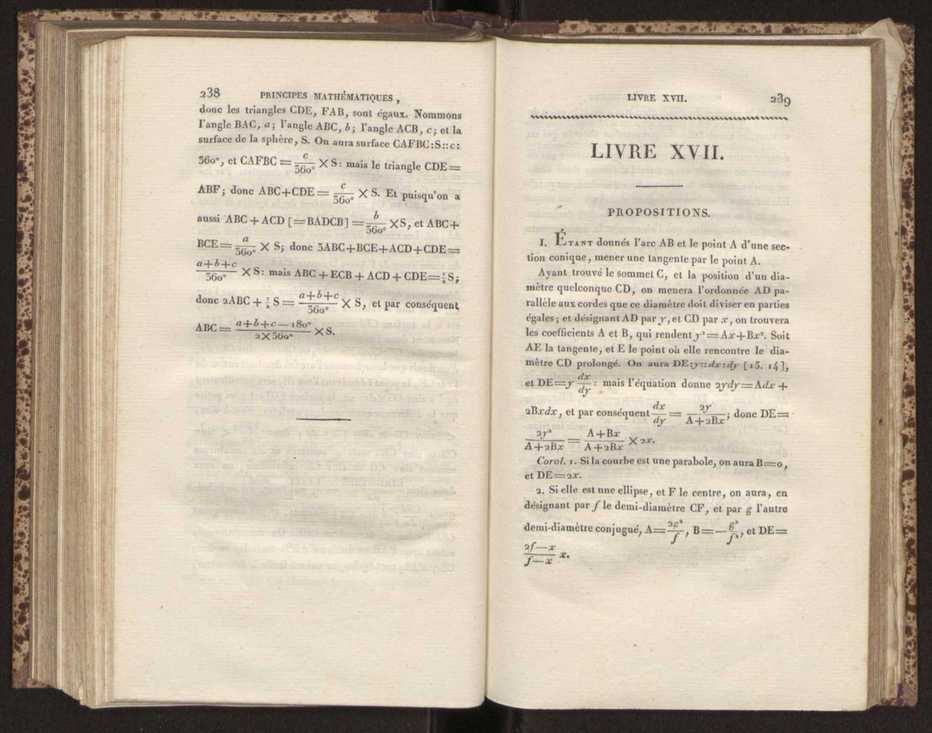 238 PRINCIPES MATHÉMATIQUES,
donc les triangles CDE, FAB, sont égaux. Nommons
l'angle BAC, a; l'angle ABC, b; l'angle ACB, c; et la
surface de la sphère, S. On aura surface CAFBC:S::c:
360°, et CAFBC = c/360° × S: mais le triangle CDE =
ABF; donc ABC+CDE = c/360° × S. Et puisqu'on a
aussi ABC + ACD [=BADCB] = b/360° ×S, et ABC+
BCE = a/360° × S; donc 3ABC+BCE+ACD+CDE =
a+b+c/360° × S: mais ABC + ECB + ACD + CDE = S;
donc 2ABC + S = a+b+c/360° × S, et par conséquent
ABC = a+b+c—180°/2×360° × S.
LIVRE XVII. 239
LIVRE XVII.
PROPOSITIONS.
1. ÉTANT donnés l'arc AB et le point A d'une sec-
tion conique, mener une tangente par le point A.
Ayant trouvé le sommet C, et la position d'un dia-
mètre quelconque CD, on menera l'ordonnée AD pa-
rallèle aux cordes que ce diamètre doit diviser en parties
égales; et désignant AD par y, et CD par x, on trouvera
les coefficients A et B, qui rendent y²=Ax+Bx². Soit
AE la tangente, et E le point où elle rencontre le dia-
mètre CD prolongé. On aura DE:y::dx:dy [15. 14],
et DE=y dx/dy: mais l'équation donne 2ydy=Adx +
2Bxdx, et par conséquent dx/dy = 2y/A+2Bx; donc DE=
2y²/A+2Bx = A+Bx/A+2Bx × 2x.
Corol. 1. Si la courbe est une parabole, on aura B=0,
et DE=2x.
2. Si elle est une ellipse, et F le centre, on aura, en
désignant par f le demi-diamètre CF, et par g l'autre
demi-diamètre conjugué, A=2g²/f, B=—g²/f², et DE=
2f—x/f—x x.